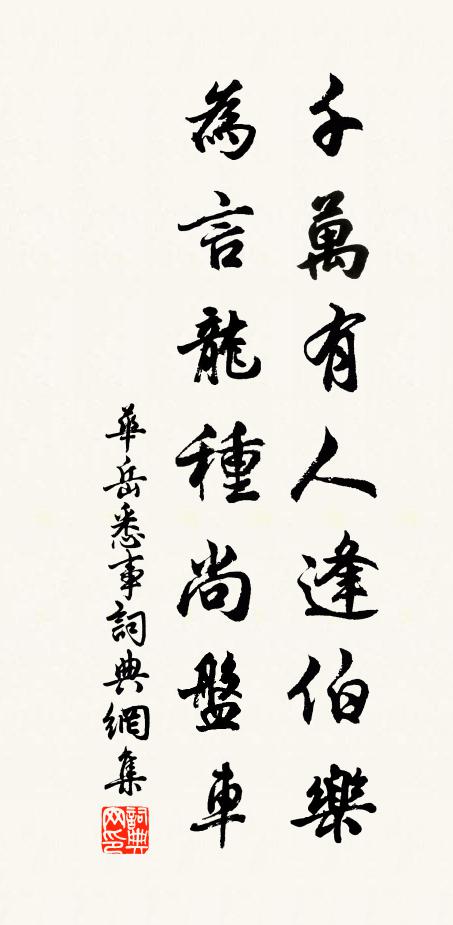 千萬有人逢伯樂
為言龍種尚盤車
華岳悉事詞典網集
詞典网印